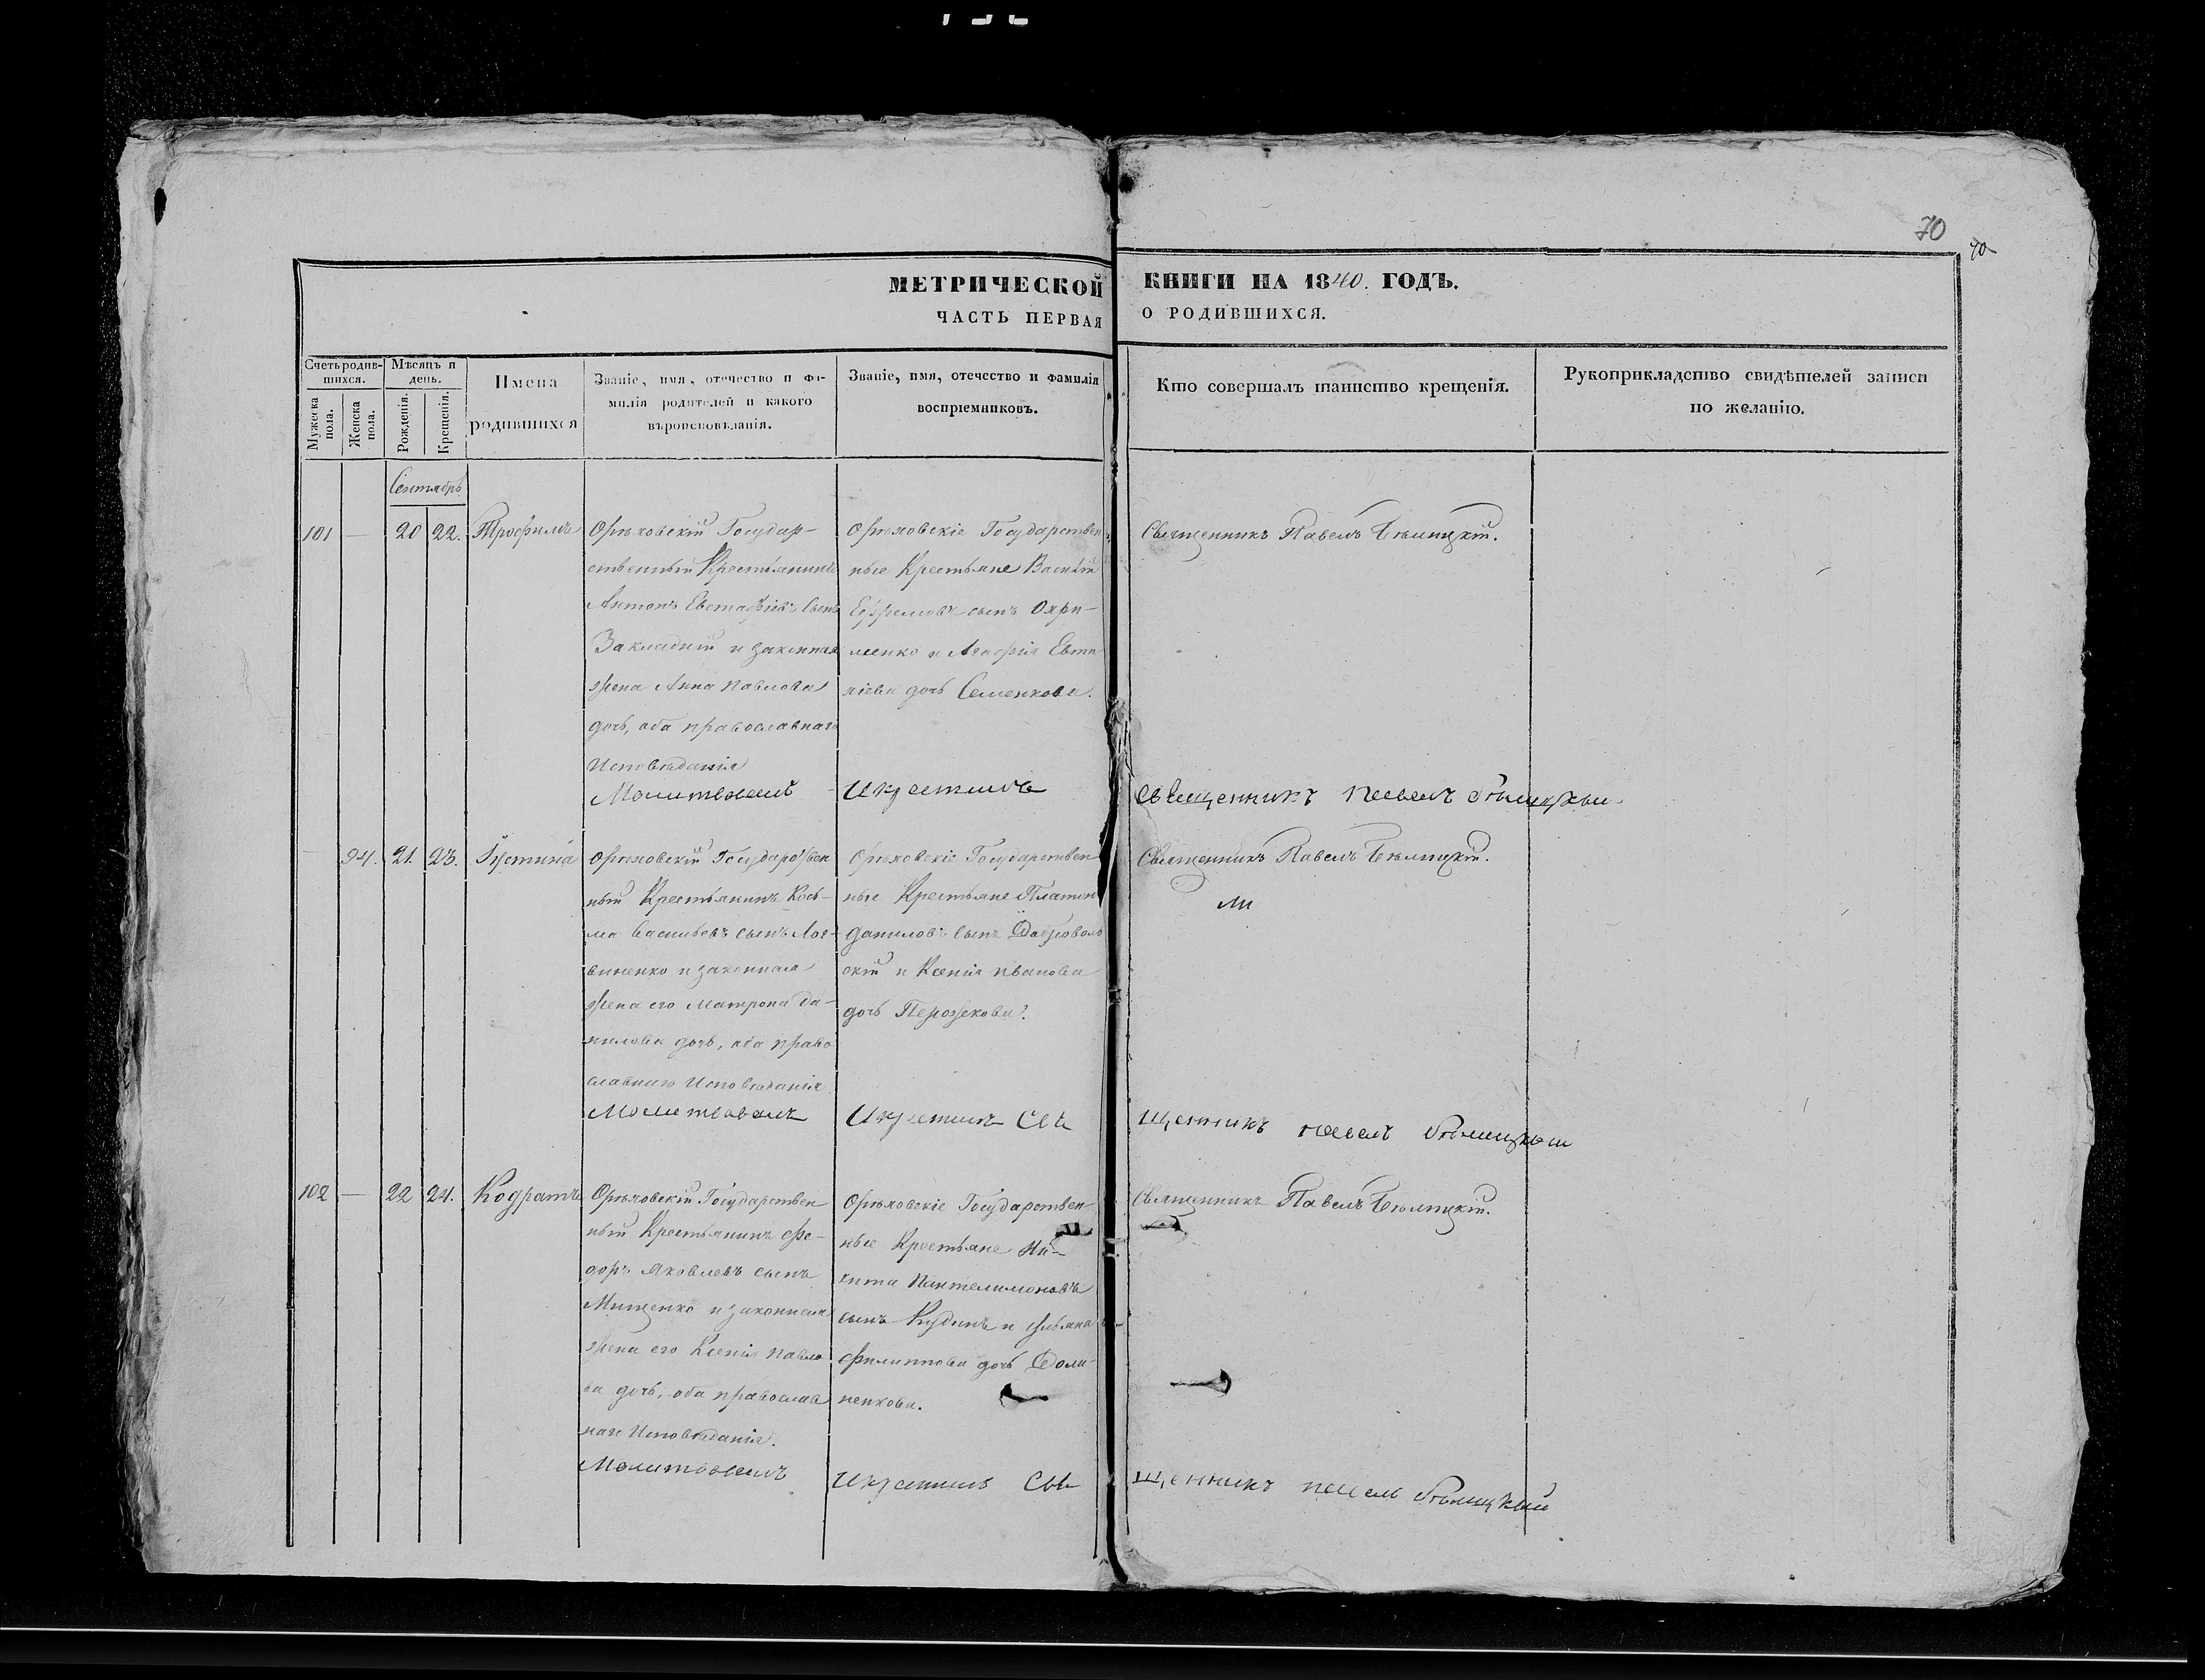 70
70
МЕТРИЧЕСКОЙ КНИГИ НА 1840. ГОДЪ.
ЧАСТЬ ПЕРВАЯ О РОДИВШИХСЯ.
Счетъ родив-
шихся.
Мужеска пола.
Женска пола.
Мѣсяцъ и
день.
Рожденія.
Крещенія.
Имена
родившихся
Званіе, имя, отечество и фа-
милія родителей и какого
вѣроисповѣданія.
Званіе, имя, отечество и фамилія
воспріемниковъ.
Кто совершалъ таинство крещенія.
Рукоприкладство свидѣтелей записи
по желанію.
Сентябрь
101 — 20 22. Трофимъ
Орѣховскій Государ-
ственный Крестьянинъ
Антонъ Евстафіевъ сынъ
Закладній и законная
жена Анна Павлова
дочь, оба православнаго
Исповѣданія
Орѣховскіе Государствен
ные Крестьяне Василій
Ефремовъ сынъ Охри-
менко и Агафія Евти
хіева дочь Семенкова.
Священникъ Павелъ Бѣлицкій.
Молитвовалъ и крестилъ священникъ Павелъ Бѣлицкий
94. 21. 23. Іустина
Орѣховскій Государствен
ный Крестьянинъ Кось-
ма Васильевъ сынъ Лог-
виненко и законная
жена его Матрона Да-
нилова дочь, оба право
славнаго Исповѣданія
Орѣховскіе Государствен
ные Крестьяне Платонъ
Даниловъ сынъ Доброволь
скій и Ксенія Иванова
дочь Пережкова.
Священникъ Павелъ Бѣлицкій.
Молитвовалъ И крестилъ Свѣщенникъ павелъ бѣлицкий
102 — 22 24. Кодратъ
Орѣховскій Государствен
ный Крестьянинъ Фе-
доръ Яковлевъ сынъ
Мищенко и законная
жена его Ксенія Павло
ва дочь, оба православ
наго Исповѣданія.
Орѣховскіе Государствен-
ные Крестьяне Ни-
кита Пантелимоновъ
сынъ Кудинъ и Ульяна
Филиппова дочь Доли-
ненкова.
Священникъ Павелъ Бѣлицкій.
Молитвовалъ И крестилъ Свѣщенникъ павелъ бѣлицкий